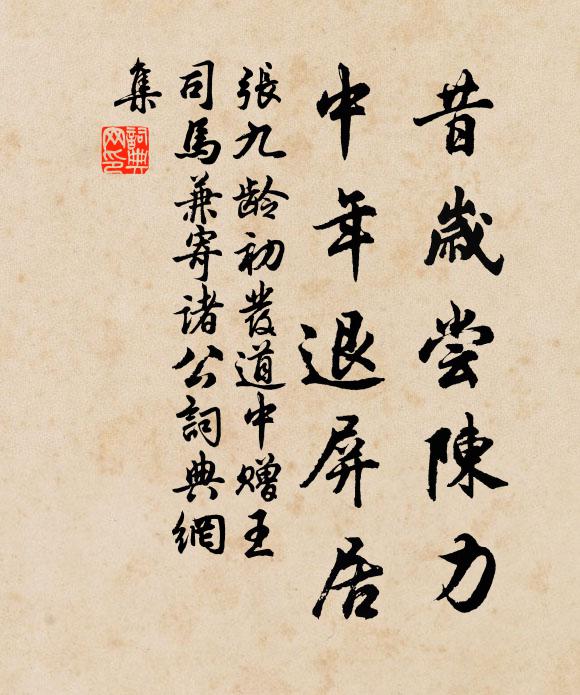 昔歲嘗陳力
中年退屏居
張九齡初發道中贈王
司馬兼寄諸公詞典網
集
詞典
网印